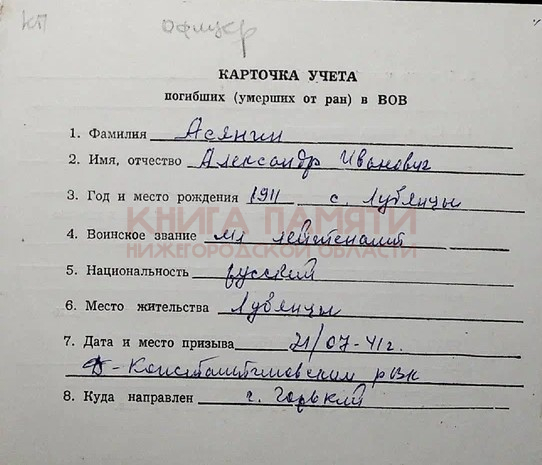 КП офицер
КАРТОЧКА УЧЕТА
погибших (умерших от ран) в ВОВ
1. Фамилия Асянин
2. Имя, отчество Александр Иванович
3. Год и место рождения 1911 с. Лубянцы
КНИГА ПАМЯТИ
4. Воинское звание мл лейтенант
НИЖЕГОРОДСКОЙ ОБЛАСТИ
5. Национальность русский
6. Место жительства Лубянцы
7. Дата и место призыва 21/07-41г.
Д-Константиновским рвк
8. Куда направлен г. Горький